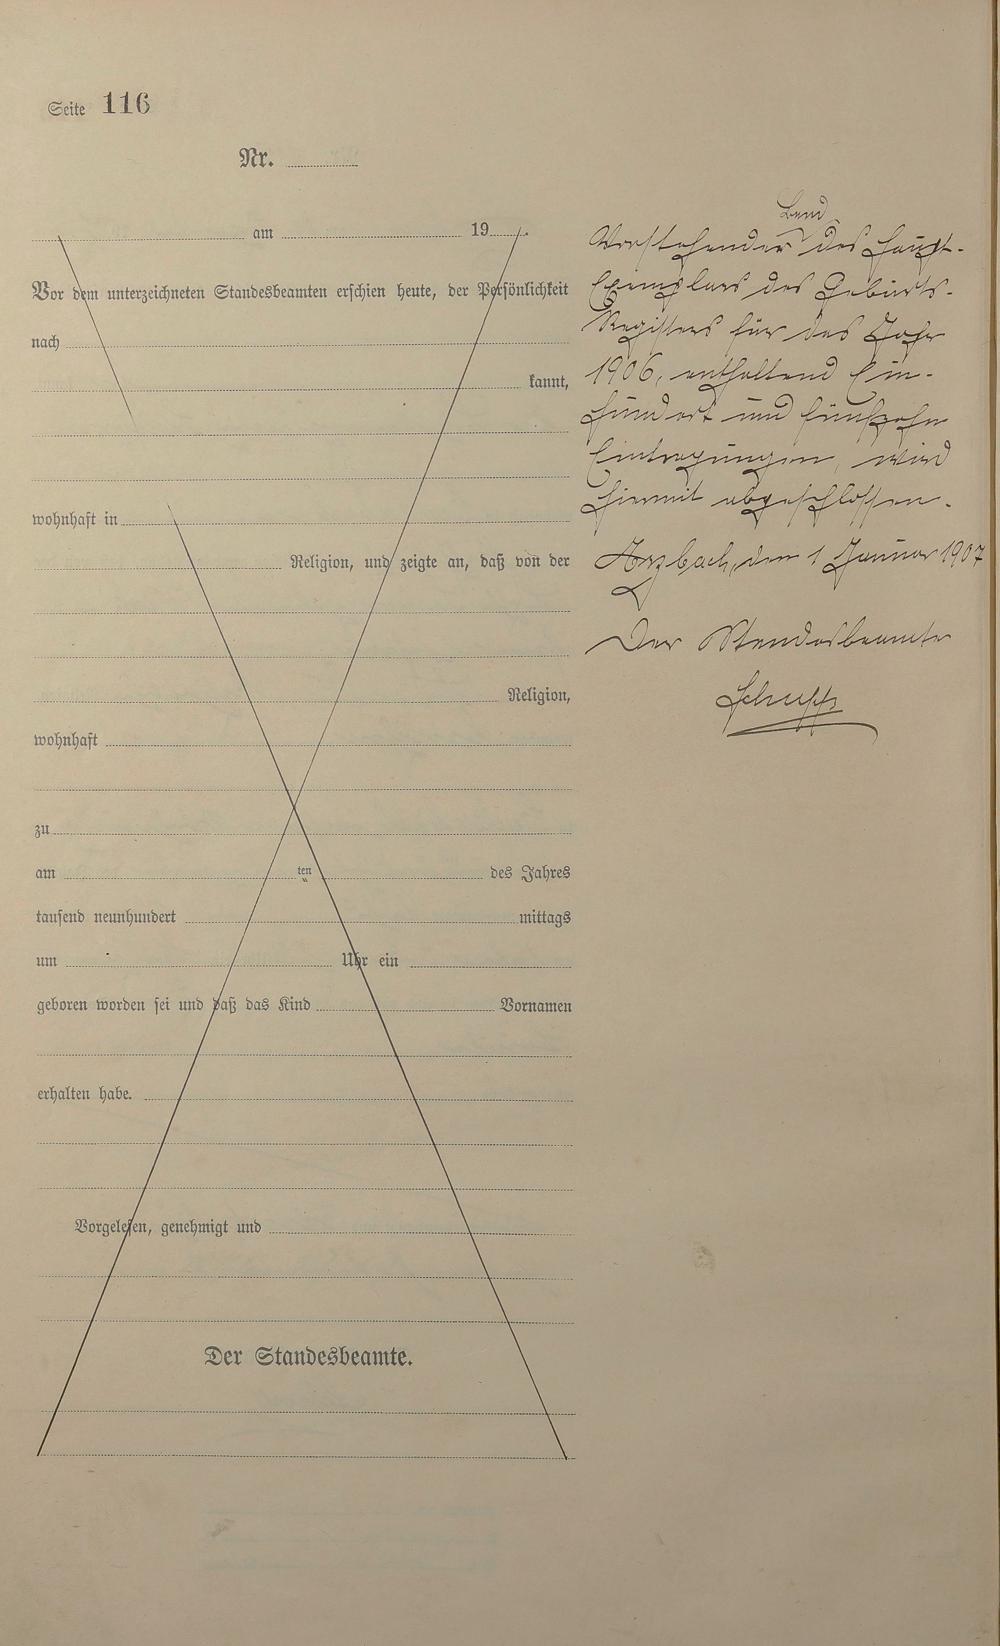 Seite 116
Nr.
am 19
Vor dem unterzeichneten Standesbeamten erschien heute, der Persönlichkeit
nach
kannt,
wohnhaft in
Religion, und zeigte an, daß von der
Religion,
wohnhaft
zu
am ten des Jahres
tausend neunhundert mittags
um Uhr ein
geboren worden sei und daß das Kind Vornamen
erhalten habe.
Vorgelesen, genehmigt und
Der Standesbeamte.
Band
Vorstehender des Haupt-
Exemplars des Geburts-
Registers für das Jahr
1906, enthaltend Ein-
hundert und fünfzehn
Eintragungen, wird
hiermit abgeschlossen.
Arzbach, den 1 Januar 1907
Der Standesbeamte